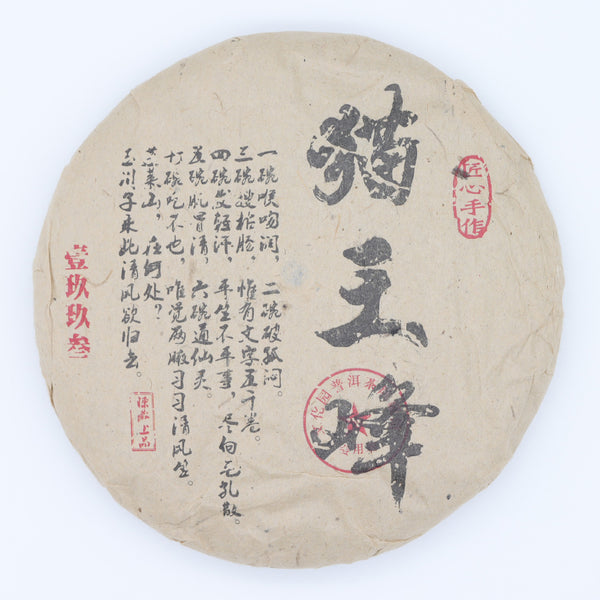 匠心手作
猫王峰
文化园普洱茶
专用
一碗喉吻润,二碗破孤闷。
三碗搜枯肠,惟有文字五千卷。
四碗发轻汗,平生不平事,尽向毛孔散。
五碗肌骨清,六碗通仙灵。
七碗吃不也,唯觉两腋习习清风生。
蓬莱山,在何处?
玉川子乘此清风欲归去。
陈藏上品
壹玖玖叁